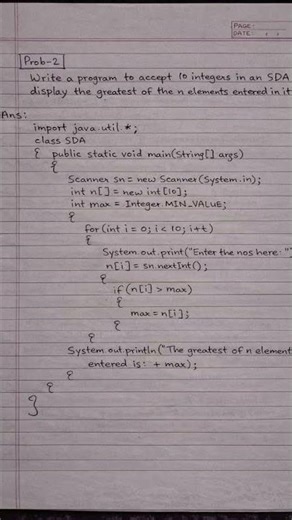 PAGE:
DATE:
Prob-2
Write a program to accept 10 integers in an SDA
display the greatest of the n elements entered in it
Ans:
import java.util.*;
class SDA
{ public static void main(String[] args)
{
Scanner sn = new Scanner(System.in);
int n[] = new int[10];
int max = Integer.MIN_VALUE;
{
for(int i = 0; i < 10; i+t)
{
System.out.print("Enter the nos here: "
n[i] = sn.nextInt();
{
if(n[i] > max)
{
max = n[i];
{
{
System.out.println("The greatest of n element
entered is: + max);
{
{
}